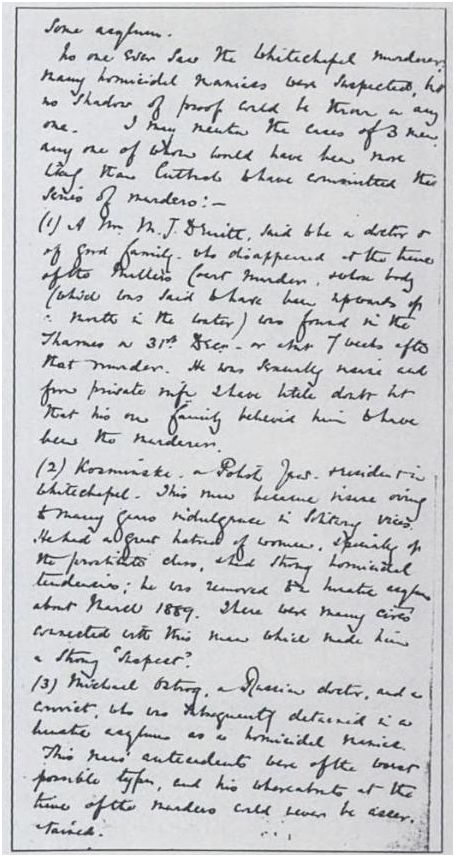 some asylum.
No one ever saw the Whitechapel murderer,
many homicidal maniacs were suspected, but
no shadow of proof could be thrown on any
one. I may mention the cases of 3 men,
any one of whom would have been more
likely than Cutbush to have committed this
series of murders:—
(1) A Mr. M. J. Druitt, said to be a doctor &
of good family - who disappeared at the time
of the Millers Court murder, & whose body
(which was said to have been upwards of
a month in the water) was found in the
Thames on 31st Decr. - or about 7 weeks after
that murder. He was sexually insane and
from private info I have little doubt but
that his own family believed him to have
been the murderer.
(2) Kosminski - a Polish Jew - & resident in
Whitechapel. This man became insane owing
to many years indulgence in solitary vices.
He had a great hatred of women, specially of
the prostitute class, & had strong homicidal
tendencies; he was removed to a lunatic asylum
about March 1889. There were many circs
connected with this man which made him
a strong "suspect".
(3) Michael Ostrog, a Russian doctor, and a
convict, who was subsequently detained in a
lunatic asylum as a homicidal maniac.
This man's antecedents were of the worst
possible type, and his whereabouts at the
time of the murders could never be ascer-
tained.